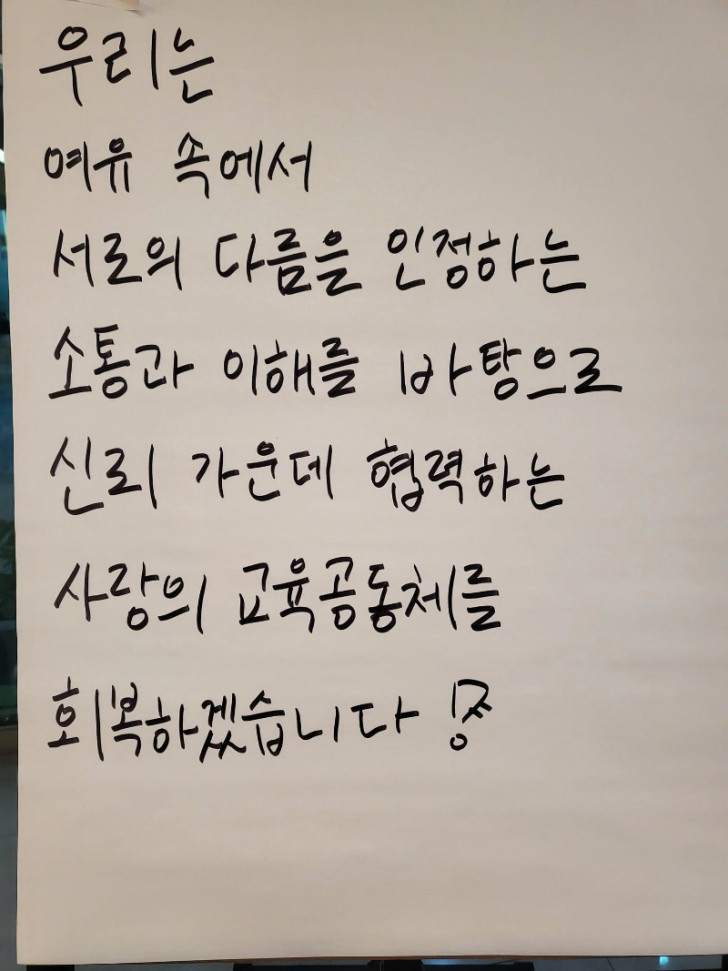 우리는
여유 속에서
서로의 다름을 인정하는
소통과 이해를 바탕으로
신뢰 가운데 협력하는
사랑의 교육공동체를
회복하겠습니다